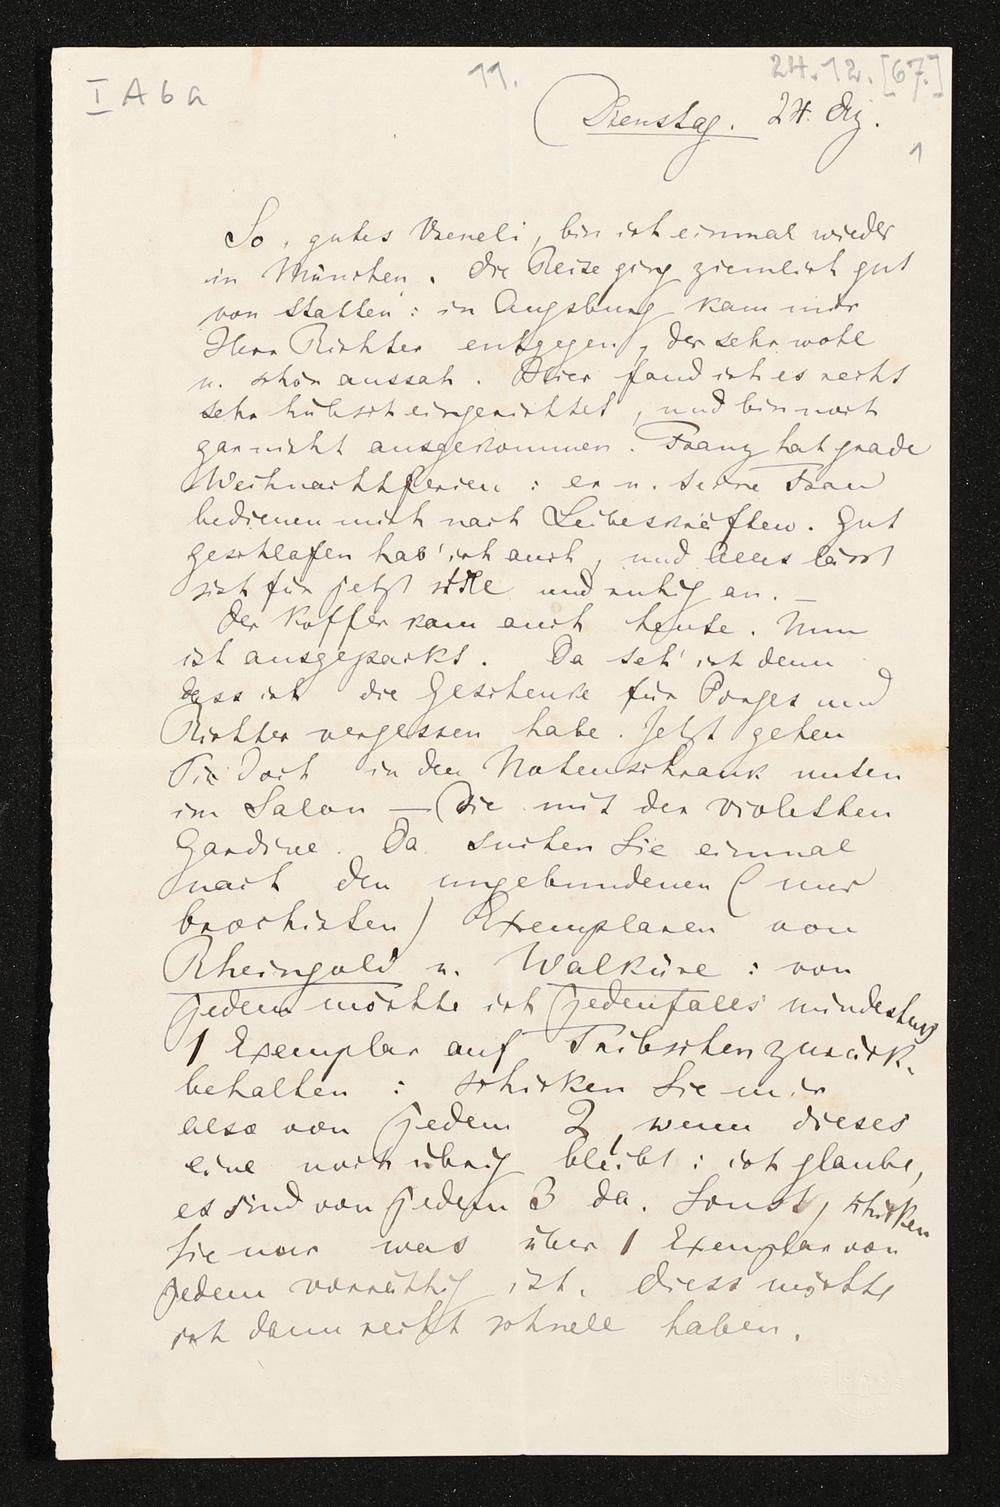 I A 6 a
11.
24.12.[67.]
Dienstag. 24. Dez.
1
So, gutes Vreneli, bin ich einmal wieder
in München. Die Reise ging ziemlich gut
von Statten: in Augsburg kam mir
Herr Richter entgegen, der sehr wohl
u. schön aussah. Hier fand ich es recht
sehr hübsch eingerichtet, und bin noch
gar nicht ausgekommen. Franz hat grade
Weihnachtsferien: er u. seine Frau
bedienen mich nach Leibeskräften. Gut
geschlafen hab' ich auch, und Alles lässt
sich für jetzt still und ruhig an. —
Der Koffer kam auch heute. Nun
ist ausgepackt. Da seh' ich denn
dass ich die Geschenke für Porges und
Richter vergessen habe. Jetzt gehen
Sie doch in den Notenschrank unten
im Salon — die mit der violetten
Gardine. Da suchen Sie einmal
nach den ungebundenen (nur
brochirten) Exemplaren von
Rheingold u. Walküre: von
jedem möchte ich jedenfalls mindestens
1 Exemplar auf Tribschen zurück-
behalten: schicken Sie mir
also von jedem 2, wenn dieses
eine noch übrig bleibt: ich glaube,
es sind von jedem 3 da. Sonst, schicken
Sie nur was über 1 Exemplar von
jedem vorräthig ist. Diess möchte
ich dann recht schnell haben.